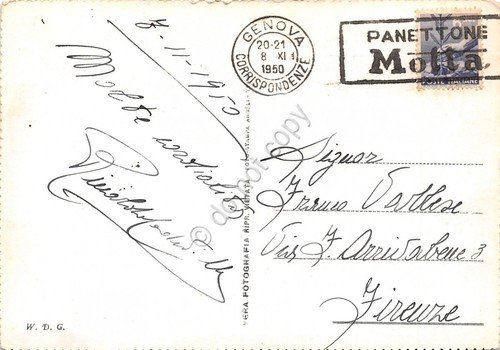 7-11-1950
Molte cordialità
GENOVA
20-21
8 XI
1950
CORRISPONDENZE
PANETTONE
Motta
POSTE ITALIANE
VERA FOTOGRAFIA RIPR. VIETATA
Signor
Franco
Via F. Arrivabene 3
Firenze
W. D. G.